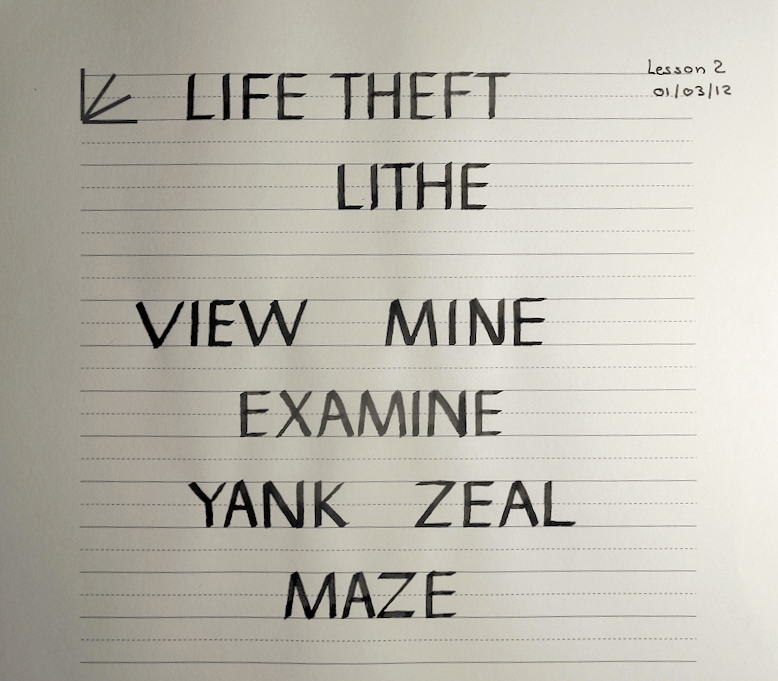 Lesson 2
01/03/12
LIFE THEFT
LITHE
VIEW MINE
EXAMINE
YANK ZEAL
MAZE